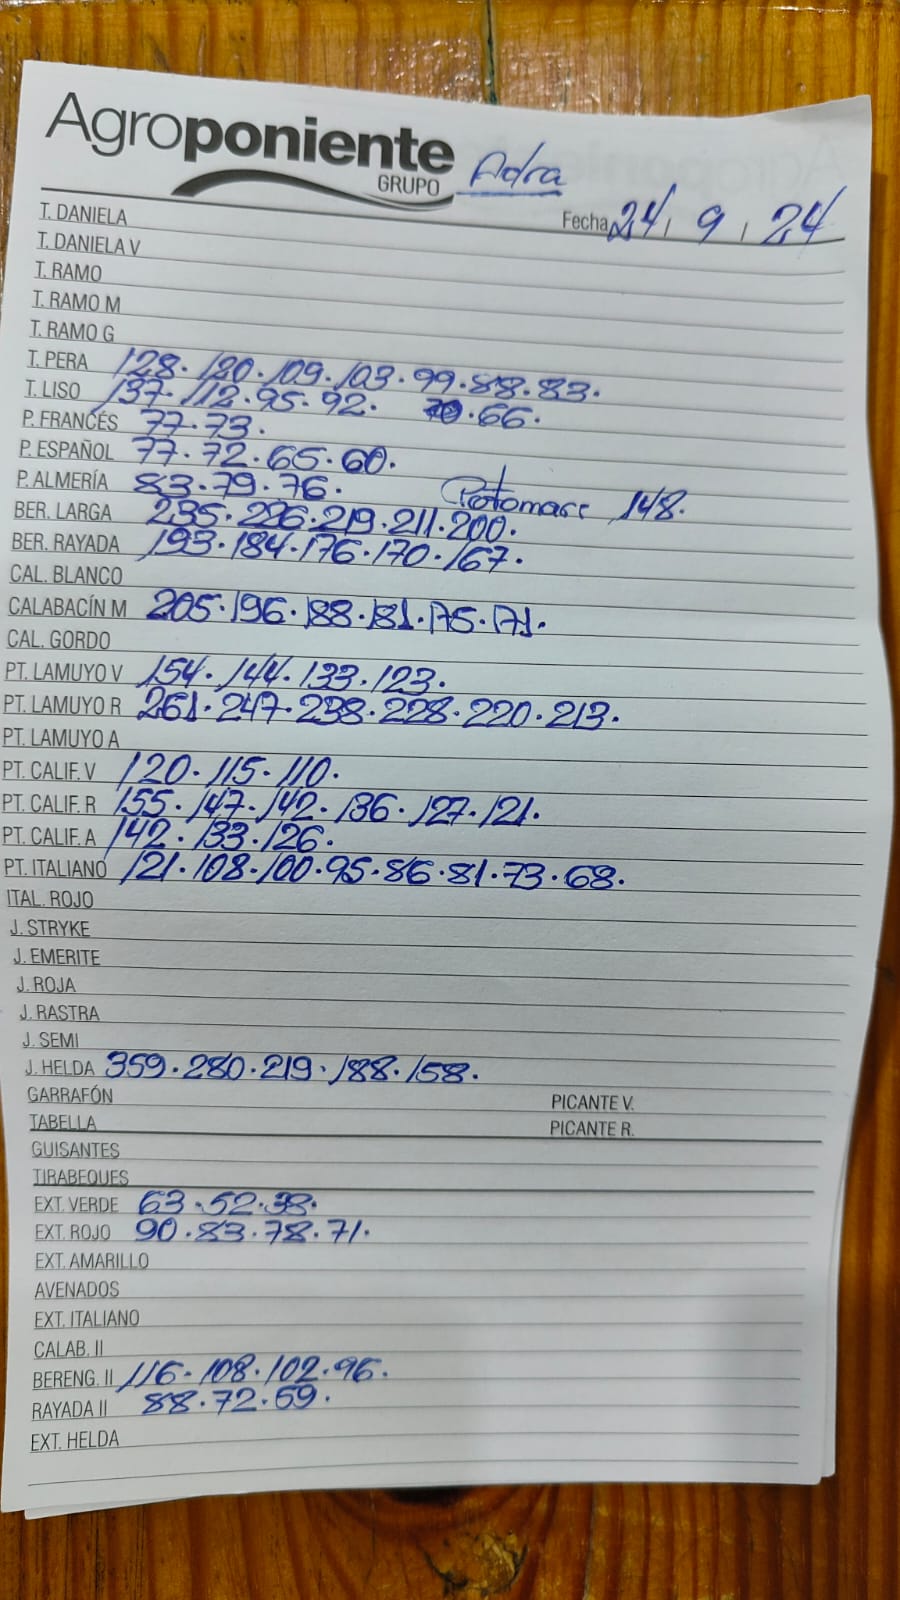 Agroponiente
GRUPO Adra
Fecha 24 / 9 / 24
T. DANIELA
T. DANIELA V
T. RAMO
T. RAMO M
T. RAMO G
T. PERA 128. 120. 109. 103. 99. 88. 83.
T. LISO 137. 112. 95. 92. 70. 66.
P. FRANCÉS 77. 73.
P. ESPAÑOL 77. 72. 65. 60.
P. ALMERÍA 83. 79. 76. 148.
BER. LARGA 235. 226. 219. 211. 200.
BER. RAYADA 193. 184. 176. 170. 167.
CAL. BLANCO
CALABACÍN M 205. 196. 188. 181. 175. 171.
CAL. GORDO
PT. LAMUYO V 154. 144. 133. 123.
PT. LAMUYO R 261. 247. 238. 228. 220. 213.
PT. LAMUYO A
PT. CALIF. V 120. 115. 110.
PT. CALIF. R 155. 147. 142. 136. 127. 121.
PT. CALIF. A 142. 133. 126.
PT. ITALIANO 121. 108. 100. 95. 86. 81. 73. 68.
ITAL. ROJO
J. STRYKE
J. EMERITE
J. ROJA
J. RASTRA
J. SEMI
J. HELDA 359. 280. 219. 188. 158.
GARRAFÓN PICANTE V.
TABELLA PICANTE R.
GUISANTES
TIRABEQUES
EXT. VERDE 63. 52. 38.
EXT. ROJO 90. 83. 78. 71.
EXT. AMARILLO
AVENADOS
EXT. ITALIANO
CALAB. II
BERENG. II 116. 108. 102. 96.
RAYADA II 88. 72. 59.
EXT. HELDA